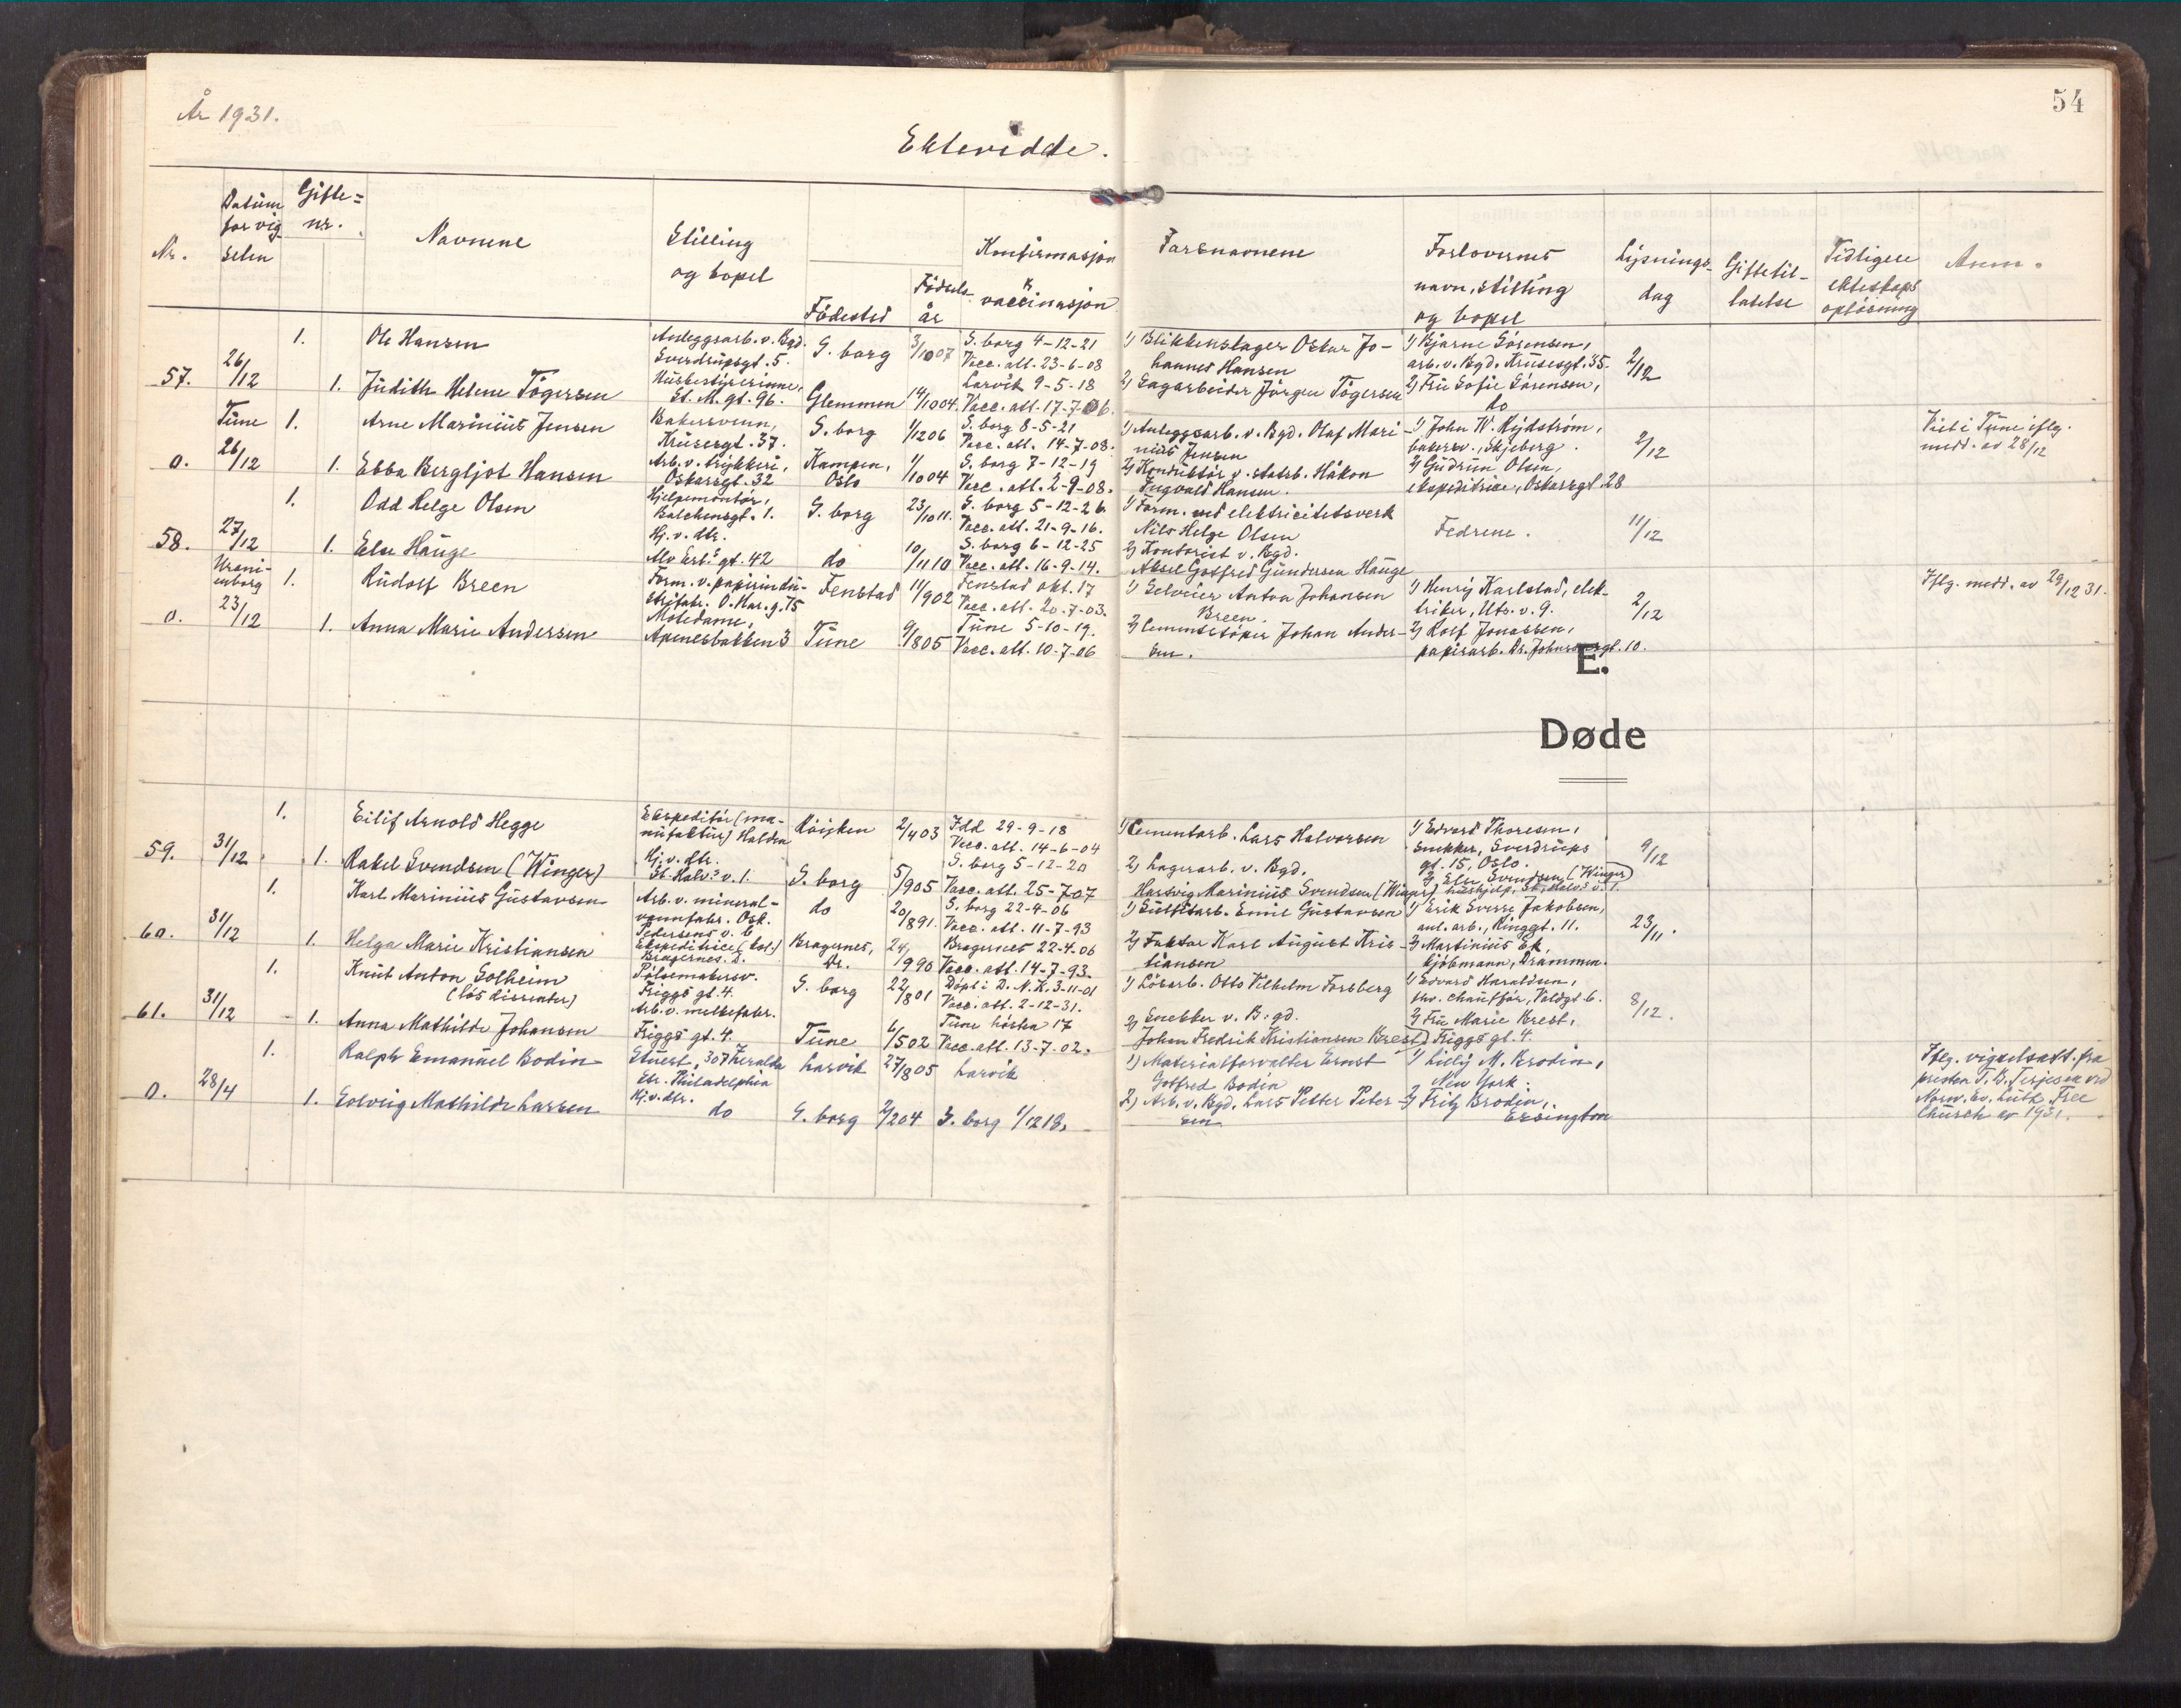 År 1931.
54
Ektevidde.
Nr.
Datum for vigselen
Gifte= nr.
Navnene
Stilling og bopel
Fødested
Fødselsår
Konfirmasjon & vaccinasjon
Farsnavnene
Forlovernes navn, stilling og bopel
Lysnings- dag
Giftetil- latelse
Tidligere ekteskaps opløsning
Anm.
57.
26/12
1. Ole Hansen
Anleggsarb. v. Bgd.
Sverdrupsgt. 5.
S. borg
3/10 07
S. borg 4-12-21
Vacc. att. 23-6-08
1) Blikkenslager Oskar Jo-
hannes Hansen
1) Bjarne Sørensen,
arb. v. Bgd. Krusesgt. 35.
2/12
1. Judith Helene Tøgersen
Husbestyrerinne,
St. M. gt. 96.
Glemmen
14/10 04.
Larvik 9-5-18
Vacc. att. 17-7-06.
2) Sagarbeider Jørgen Tøgersen
2) Fru Sofie Sørensen,
do
0.
Tune
26/12
1. Arne Marinius Jensen
Bakersvenn,
Krusesgt. 37.
S. borg
1/12 06
S. borg 8-5-21
Vacc. att. 14-7-08.
1) Anleggsarb. v. Bgd. Olaf Mari-
nius Jensen
1) John W. Rydstrøm,
bakersv., Skjeberg.
2/12
Viet i Tune iflg.
medd. av 28/12
1. Ebba Bergljot Hansen
Arb. v. trykkeri,
Oskarsgt. 32
Kampen,
Oslo
1/10 04
S. borg 7-12-19
Vacc. att. 2-9-08.
2) Konduktør v. statsb. Håkon
Ingvald Hansen.
2) Gudrun Olsen,
ekspeditrice, Oskarsgt. 28
58.
27/12
1. Odd Helge Olsen
Hjelpemontør,
Balchensgt. 1.
S. borg
23/10 11.
S. borg 5-12-26.
Vacc. att. 21-9-16.
1) Form. ved elektricitetsverk
Nils Helge Olsen
Fedrene.
11/12
1. Else Hauge
Hj. v. dtr.
Alv Erl.s gt. 42
do
10/11 10
S. borg 6-12-25
Vacc. att. 16-9-14.
2) Kontorist v. Bgd.
Aksel Gotfred Gundersen Hauge
0.
Urani-
enborg
23/12
1. Rudolf Breen
Form. v. papirindu-
strifabr. O. Har. g. 75
Fenstad
11/9 02
Fenstad okt. 17
Vacc. att. 20-7-03.
1) Selveier Anton Johansen
Breen.
1) Henry Karlstad, elek-
triker, Uts. v. 9.
2/12
Iflg. medd. av 29/12 31.
1. Anna Marie Andersen
Motedame,
Apenesbakken 3
Tune
9/8 05
Tune 5-10-19.
Vacc. att. 10-7-06
2) Cementstøper Johan Ander-
sen.
2) Rolf Jonassen,
papirarb. Kr. Johnsensgt. 10.
E.
Døde
59.
31/12
1. Eilif Arnold Hegge
Ekspeditør (ma-
nufaktur) Halden
Røyken
2/4 03
Idd 29-9-18
Vacc. att. 14-6-04
1) Cementarb. Lars Halvorsen
1) Edvard Thoresen,
Snekker, Sverdrups
gt. 15, Oslo.
9/12
1. Rakel Svendsen (Winger)
Hj. v. dtr.
St. Halv.s v. 1.
S. borg
5/9 05
S. borg 5-12-20
Vacc. att. 25-7-07
2) Lagerarb. v. Bgd.
Hartvig Marinius Svendsen (Winger)
2) Else Svendsen (Winger)
hushjelp, St. Halv.s v. 1.
60.
31/12
1. Karl Marinius Gustavsen
Arb. v. mineral-
vannfabr. Osk.
Pedersens v. 6
do
20/8 91.
S. borg 22-4-06
Vacc. att. 11-7-93
1) Sulfitarb. Emil Gustavsen
1) Erik Sverre Jakobsen,
anl. arb., Ringgt. 11.
23/11.
1. Helga Marie Kristiansen
Ekspeditrice (kol.)
Bragernes, D.
Bragernes,
Dr.
24/9 90
Bragernes 22-4-06
Vacc. att. 14-7-93.
2) Faktor Karl August Kris-
tiansen
2) Martinius Ek,
kjøbmann, Drammen.
61.
31/12
1. Knut Anton Solheim
(løs dissenter)
Pølsemakersv.
Friggs gt. 4.
S. borg
22/8 01
Døpt i D. N. K. 3-11-01
Vacc. att. 2-12-31.
1) Løsarb. Otto Vilhelm Forsberg
1) Edvard Haraldsen,
chauffør, Voldgt. 6.
8/12.
1. Anna Mathilde Johansen
Arb. v. melkefabr.
Friggs gt. 4.
Tune
6/5 02
Tune høsten 17
Vacc. att. 13-7-02.
2) Snekker v. B.gd.
Johan Fredrik Kristiansen Krest
2) Fru Marie Krest,
Friggs gt. 4.
0.
28/4
1. Ralph Emanuel Bodin
Stuert, 307
Str. Philadelphia
Larvik
27/8 05
Larvik
1) Materialforvalter Ernst
Gotfred Bodin
1) Lilly M. Brodin,
New York.
Iflg. vigselsatt. fra
presten T. B. Terjesen ved
Norw. Ev. Luth. Free
Church av 1931.
1. Solveig Mathilde Larsen
Hj. v. dtr.
do
S. borg
2/2 04
S. borg 1/12 18.
2) Arb. v. Bgd. Lars Petter Peter-
sen
2) Fritz Brodin,
Ersington